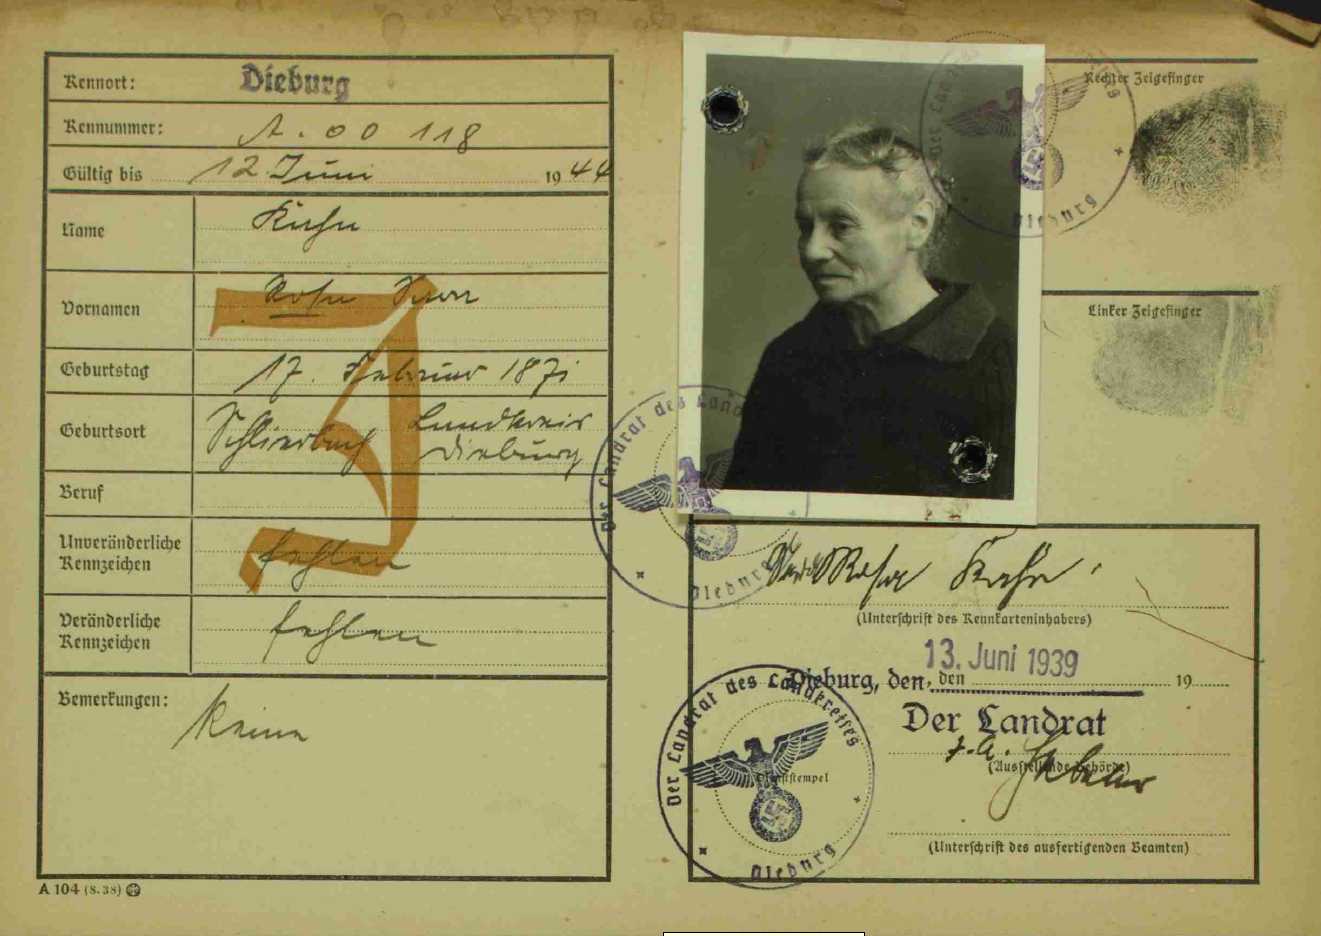 Kennort: Dieburg
Kennummer: A. 00 118
Gültig bis 12 Juni 1944
Name
Vornamen
Geburtstag 17. Februar 1871
Geburtsort Schlierbach Landkreis
Dieburg
Beruf
Unveränderliche
Kennzeichen fehlen
Veränderliche
Kennzeichen fehlen
Bemerkungen: keine
A 104 (8.38)
Rechter Zeigefinger
Linker Zeigefinger
Der Landrat des
Dieburg
Der Landrat des Land
Dieburg
Sara Rosa
(Unterschrift des Kennkarteninhabers)
13. Juni 1939
Dieburg, den, den 19
Der Landrat
J.A.
(Ausstellende Behörde)
Der Landrat des Landkreises
Dienststempel
Dieburg
(Unterschrift des ausfertigenden Beamten)